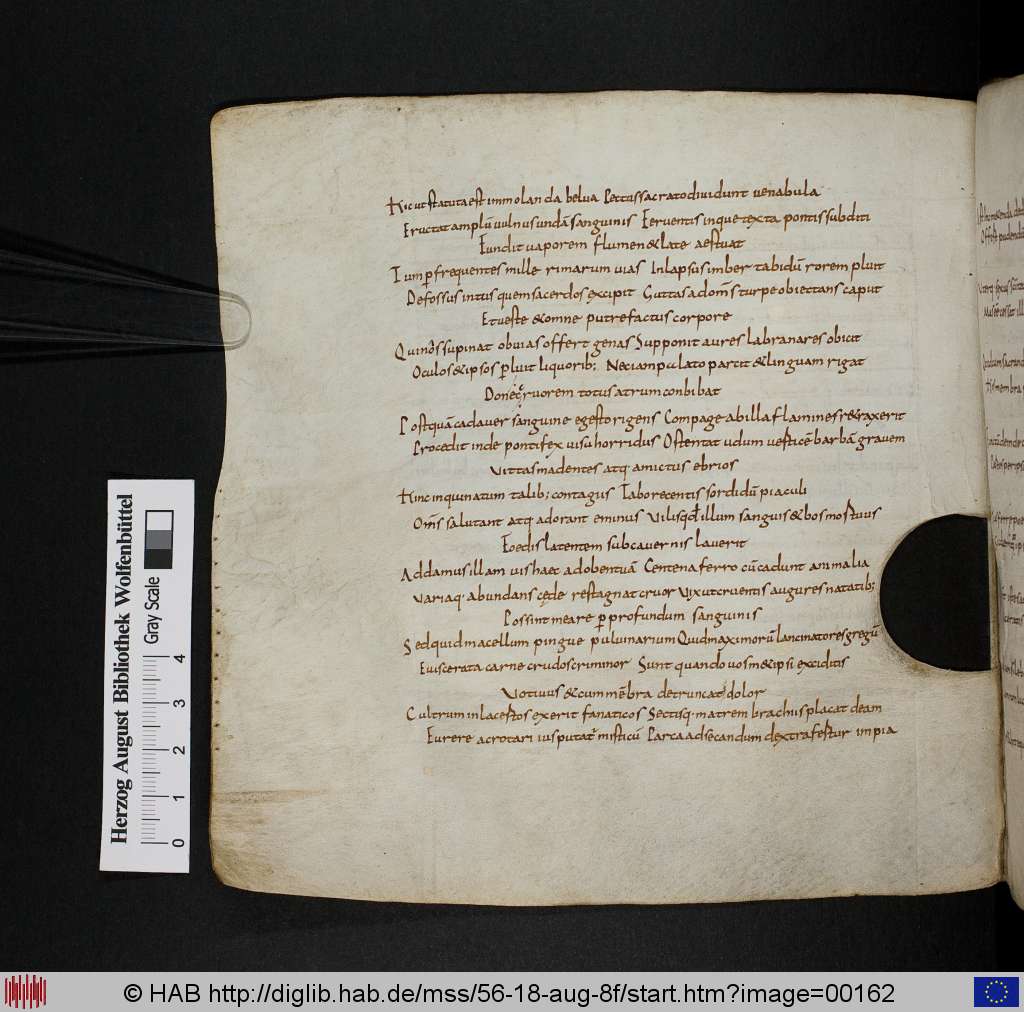 Hic ut statuta est immolanda belua Pectus sacrato dividunt venabula
Eructat amplū vulnus undā sanguinis Ferventis inque texta pontis subditi
Fundit vaporem flumen & late aestuat
Tum p̄ frequentes mille rimarum vias Inlapsus imber tabidū rorem pluit
Defossus intus quem sacerdos excipit Guttas ad om̄s turpe obiectans caput
Et veste & omne putrefactus corpore
Quin ōs supinat obvias offert genas Supponit aures labra nares obicit
Oculos & ipsos p̄luit liquorib; Nec iam palato parcit & linguam rigat
Donec cruorem totus atrum conbibat
Postquā cadaver sanguine egesto rigens Compage ab illa flamines retraxerit
Procedit inde pontifex visu horridus Ostentat udum verticē barbā gravem
Vittas madentes atq· amictus ebrios
Hinc inquinatum talib; contagiis Tabo recentis sordidū piaculi
Om̄s salutant atq· adorant eminus Vilis qđ illum sanguis & bos mortuus
Foedis latentem sub cavernis laverit
Addamus illam vis haecadobentuā Centena ferro cū cadunt animalia
Variaq· abundans cęde restagnat cruor Vix ut cruentis augures natatib;
Possint meare p̄ profundum sanguinis
Sed quid macellum pingue pulvinarium Quid maximorū lancinatores gregū
Eviscerata carne crudos criminor Sunt quando vosm& ipsi exciditis
Votivus & cum mēbra detruncat dolor
Cultrum in lacertos exerit fanaticos Sectisq· matrem brachiis placat deam
Furere ac rotari ius putat̄ misticū Parca ad secandum dextra fertur impia
Herzog August Bibliothek Wolfenbüttel
Gray Scale
0 1 2 3 4
© HAB http://diglib.hab.de/mss/56-18-aug-8f/start.htm?image=00162